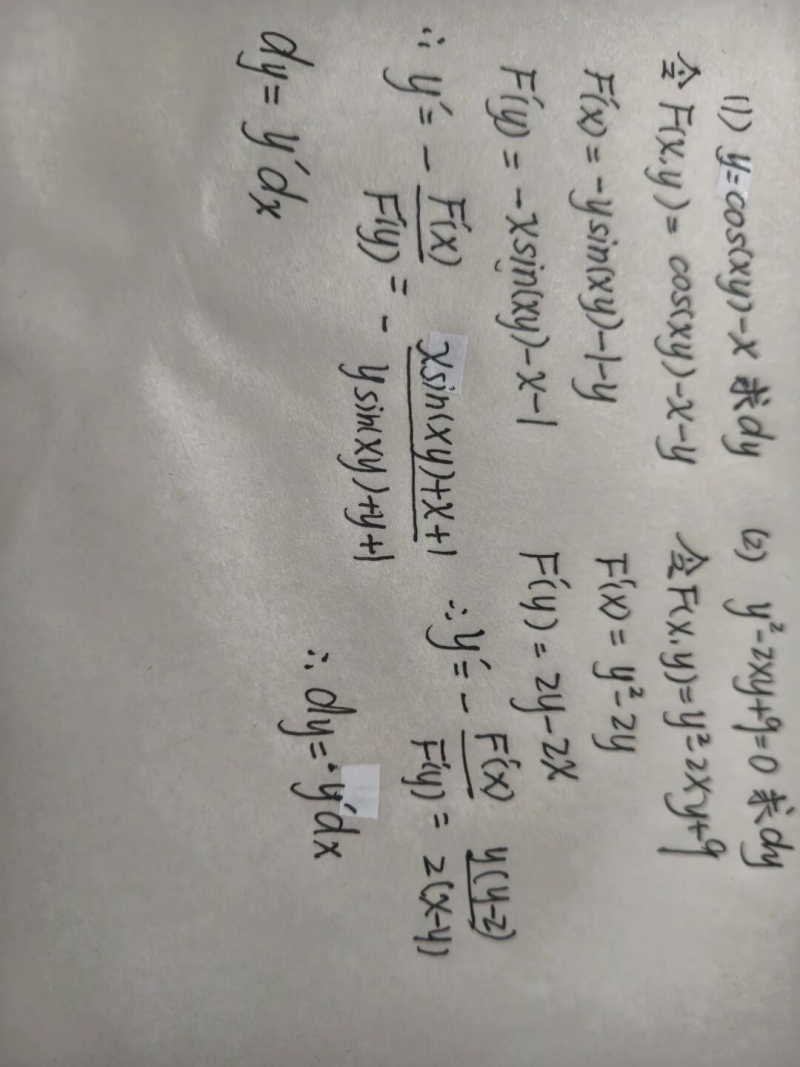 (1) y=cos(xy)-x 求dy
令 F(x,y)= cos(xy)-x-y
F'(x)=-ysin(xy)-1-y
F'(y)=-xsin(xy)-x-1
∴ y'= - F'(x)/F'(y) = - xsin(xy)+x+1/ysin(xy)+y+1
dy= y'dx
(2) y²-2xy+9=0 求dy
令F(x,y)=y²-2xy+9
F'(x)=y²-2y
F'(y)=2y-2x
∴ y'= - F'(x)/F'(y) = y(y-2)/2(x-y)
∴ dy= y'dx